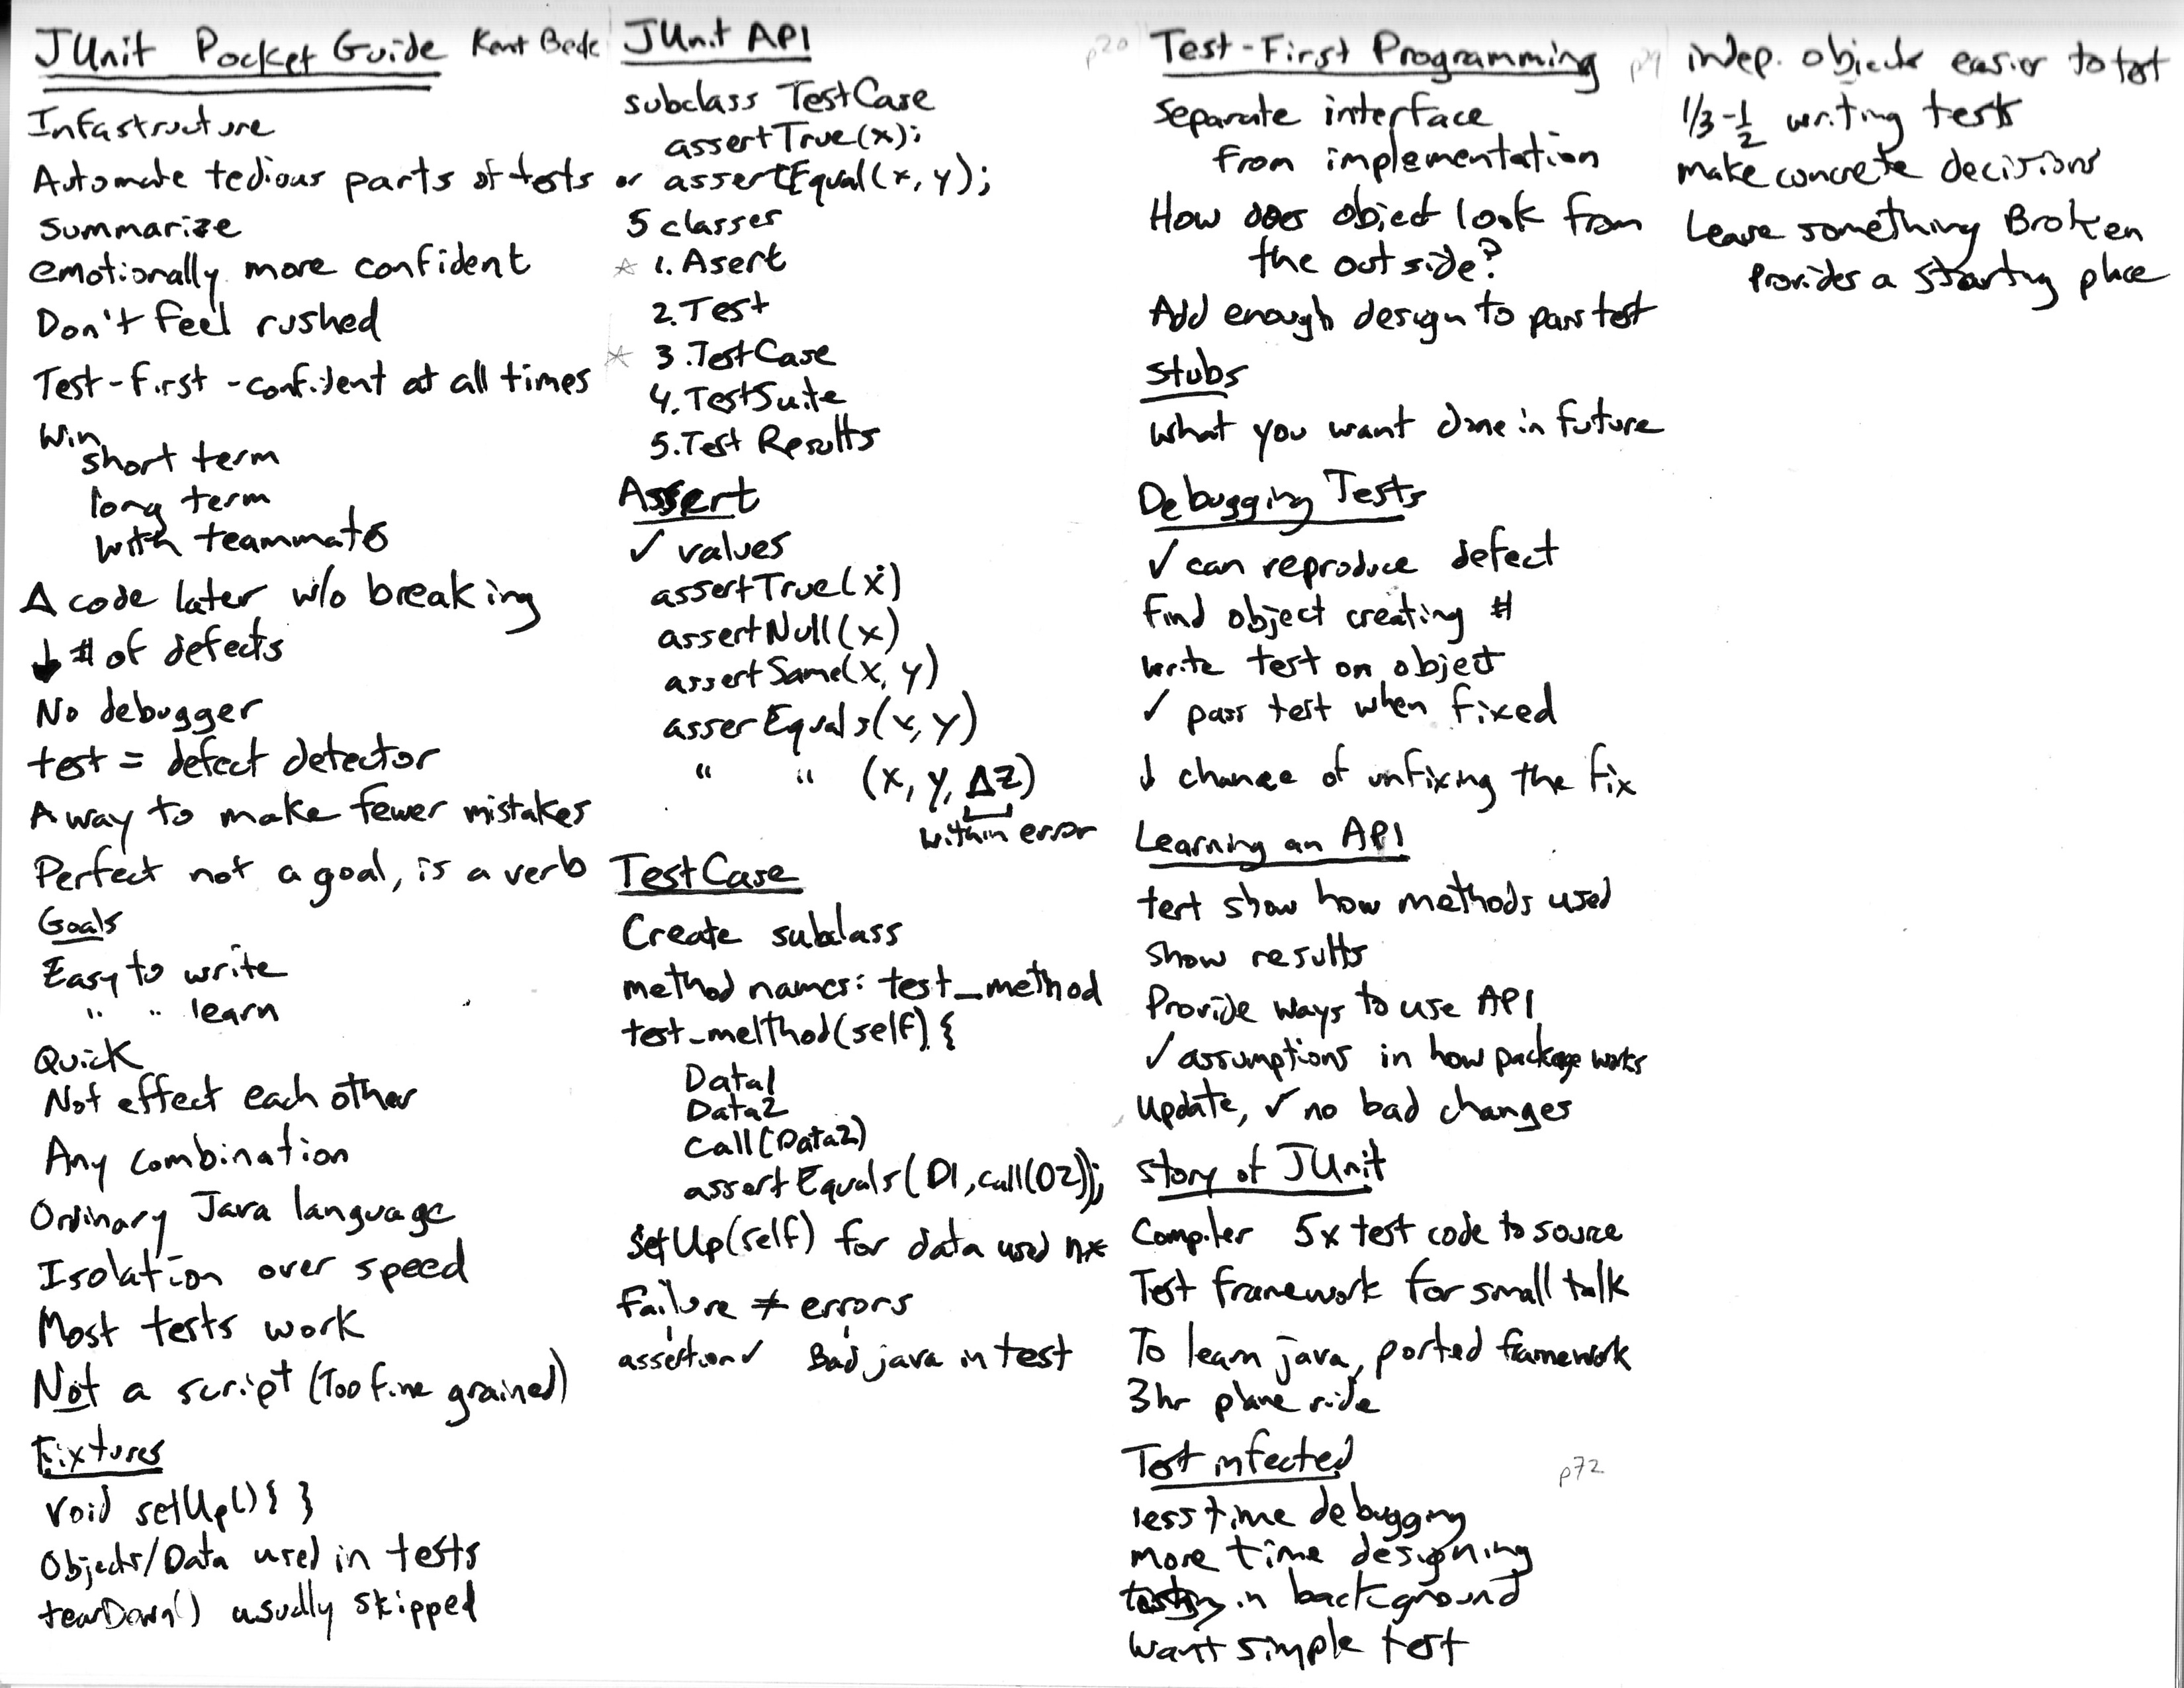 JUnit Pocket Guide Kent Beck
Infastructure
Automate tedious parts of tests
summarize
emotionally more confident
Don't feel rushed
Test-first - confident at all times
Win
short term
long term
with teammates
Δ code later w/o breaking
↓ # of defects
No debugger
test = defect detector
A way to make fewer mistakes
Perfect not a goal, is a verb
Goals
Easy to write
" " learn
Quick
Not effect each other
Any combination
Ordinary Java language
Isolation over speed
Most tests work
Not a script (Too fine grained)
Fixtures
void setUp() { }
Objects/Data used in tests
tearDown() usually skipped
JUnit API
subclass TestCase
assertTrue(x);
or assertEqual(x, y);
5 classes
☆ 1. Asert
2. Test
☆ 3. TestCase
4. TestSuite
5. Test Results
Assert
✓ values
assertTrue(x)
assertNull(x)
assertSame(x, y)
asserEquals(x, y)
" " (x, y, Δz)
within error
TestCase
Create subclass
method names: test_method
test_melthod(self) {
Data1
Data2
Call(Data2)
assertEquals(D1, call(D2));
SetUp(self) for data used nx
Failure ≠ errors
assertion ✓ Bad java in test
p20 Test-First Programming
Separate interface
from implementation
How does object look from
the outside?
Add enough design to pass test
stubs
what you want done in future
Debugging Tests
✓ can reproduce defect
Find object creating #
write test on object
✓ pass test when fixed
↓ chance of unfixing the fix
Learning an API
test show how methods used
show results
Provide ways to use API
✓ assumptions in how package works
update, ✓ no bad changes
Story of JUnit
Compiler 5x test code to source
Test framework for small talk
To learn java, ported framework
3hr plane ride
Test infected
p72
less time debugging
more time designing
testing in background
want simple test
indep. objects easier to test
1/3-1/2 writing tests
make concrete decisions
Leave something Broken
Provides a starting place